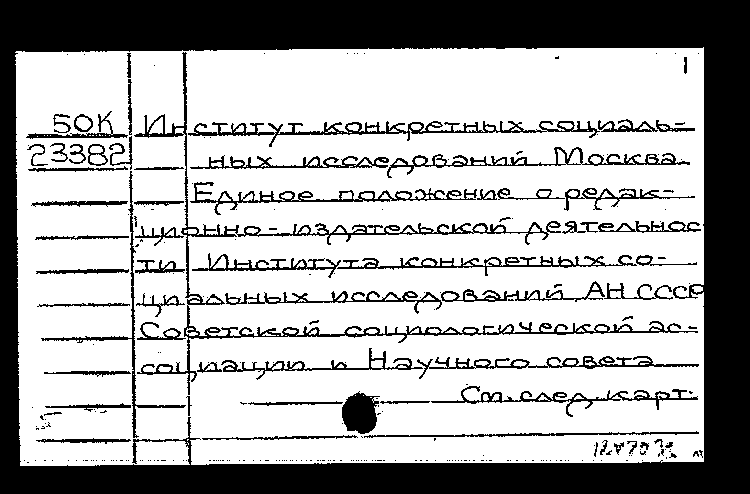 1
50К Институт конкретных социаль-
23382 ных исследований. Москва.
Единое положение о редак-
ционно-издательской деятельнос
ти Института конкретных со-
циальных исследований АН СССР
Советской социологической ас-
социации и Научного совета
См. след. карт.